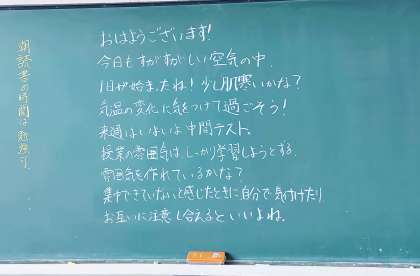 おはようございます!
今日もすがすがしい空気の中、
1日が始まったね!少し肌寒いかな?
気品の変化に気をつけて過ごそう!
来週はいよいよ中間テスト。
授業の雰囲気は、しっかり学習しようとする
雰囲気を作れているかな?
集中できていないと感じたときに自分で気付けたり
お互いに注意し合えるといいよね。
朝読書の時間は勉強可